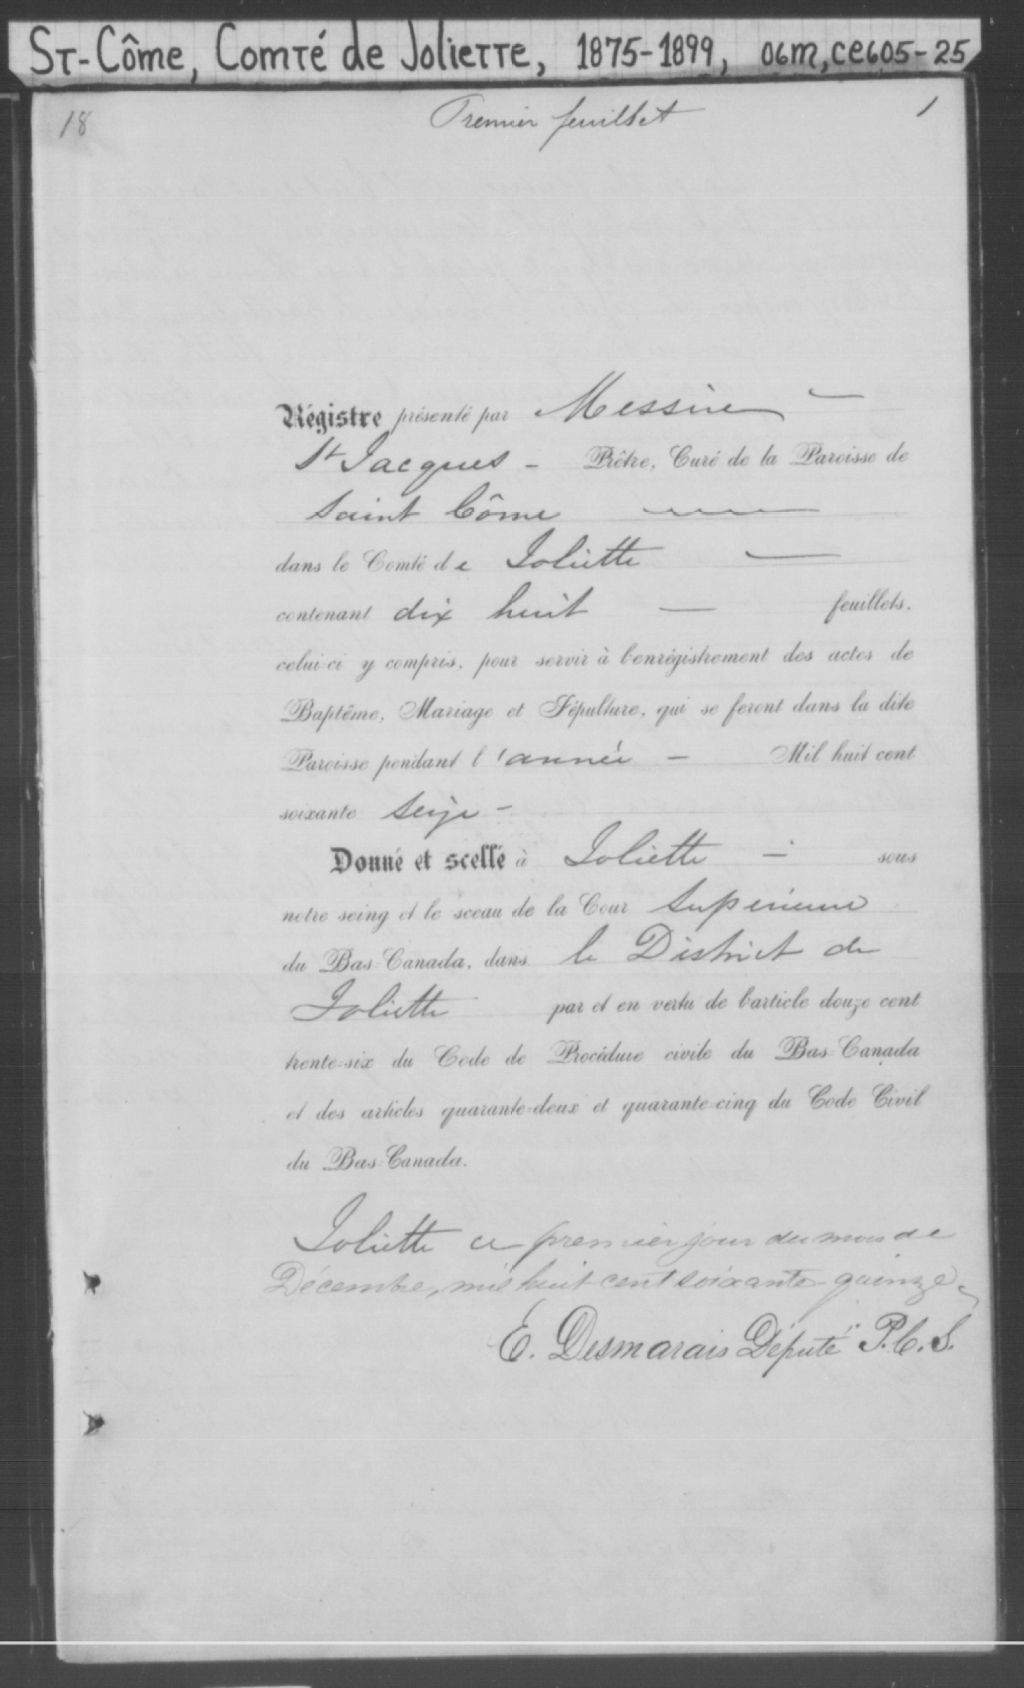 St-Côme, Comté de Joliette, 1875-1899, 06M,CE605-25
18 Premier feuillet 1
Régistre présenté par Messire —
St Jacques - Prêtre, Curé de la Paroisse de
Saint Côme
dans le Comté de Joliette —
contenant dix huit — feuillets,
celui-ci y compris, pour servir à l'enrégistrement des actes de
Baptême, Mariage et Sépulture, qui se feront dans la dite
Paroisse pendant l'année - Mil huit cent
soixante seize -
Donné et scellé à Joliette - sous
notre seing et le sceau de la Cour Supérieure
du Bas-Canada, dans le District de
Joliette par et en vertu de l'article douze cent
trente-six du Code de Procédure civile du Bas-Canada
et des articles quarante-deux et quarante-cinq du Code Civil
du Bas-Canada.
Joliette ce premier jour du mois de
Décembre, mil huit cent soixante-quinze.
E. Desmarais Député P.C.S.